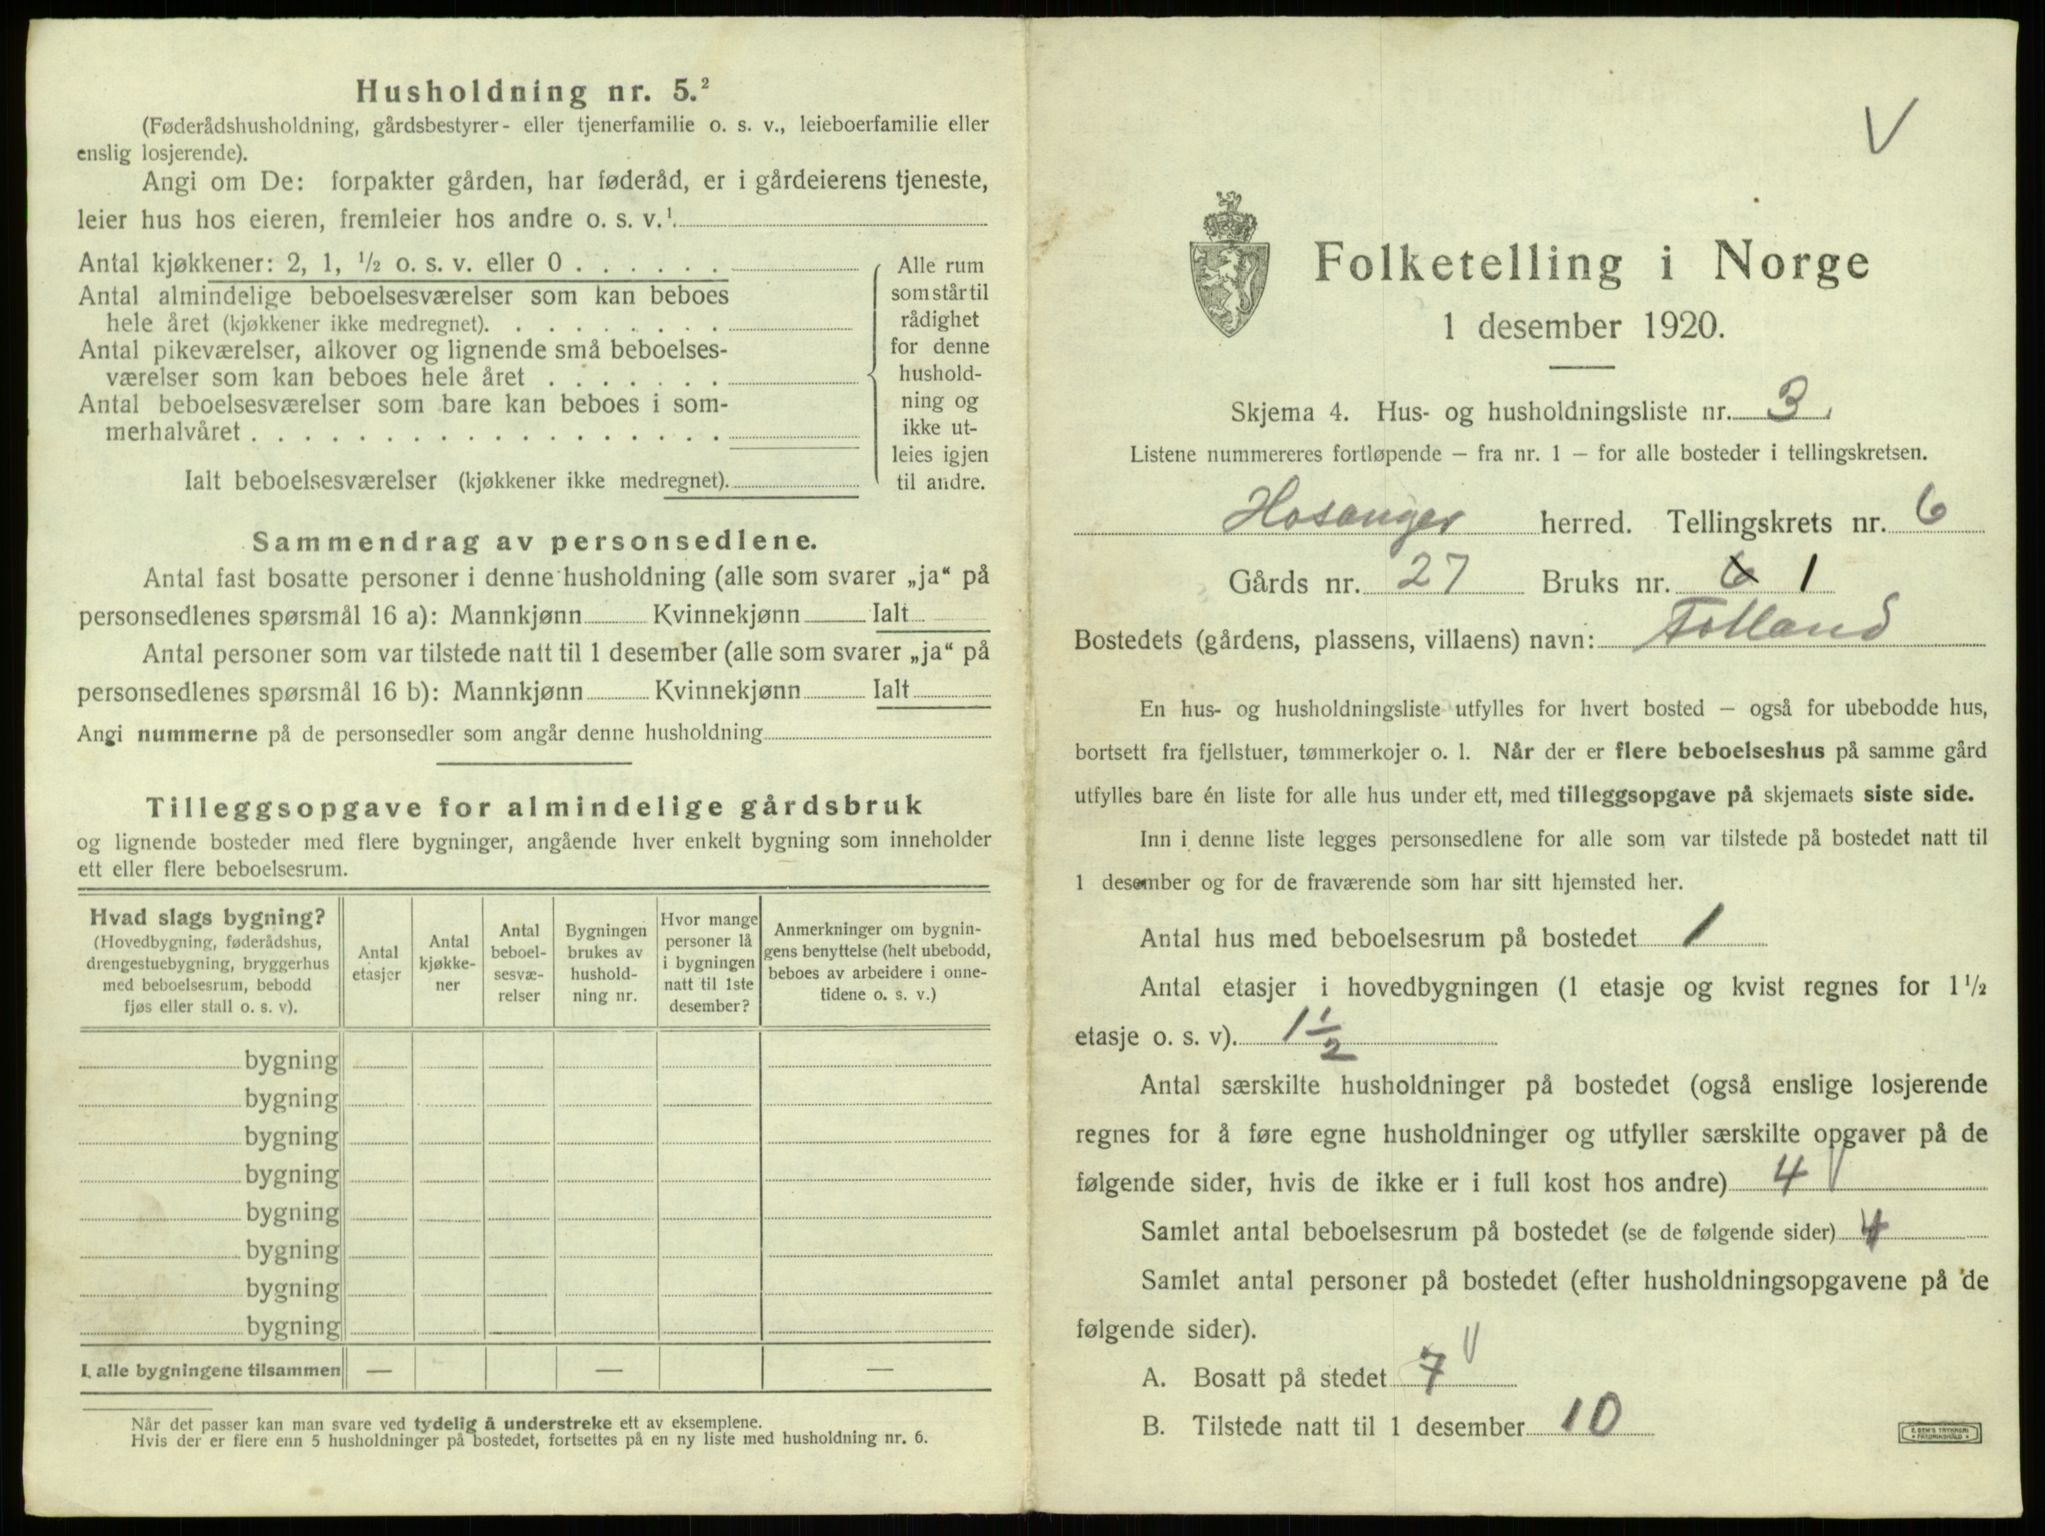 Husholdning nr. 5.²
(Føderådshusholdning, gårdsbestyrer- eller tjenerfamilie o. s. v., leieboerfamilie eller
enslig losjerende).
Angi om De: forpakter gården, har føderåd, er i gårdeierens tjeneste,
leier hus hos eieren, fremleier hos andre o. s. v.¹
Antal kjøkkener: 2, 1, ½ o. s. v. eller 0 . . . . . .
Antal almindelige beboelsesværelser som kan beboes
hele året (kjøkkener ikke medregnet). . . . . . . . .
Antal pikeværelser, alkover og lignende små beboelses-
værelser som kan beboes hele året . . . . . . .
Antal beboelsesværelser som bare kan beboes i som-
merhalvåret . . . . . . . . . . . . . . . . . .
Ialt beboelsesværelser (kjøkkener ikke medregnet).
Alle rum
som står til
rådighet
for denne
hushold-
ning og
ikke ut-
leies igjen
til andre.
Sammendrag av personsedlene.
Antal fast bosatte personer i denne husholdning (alle som svarer „ja“ på
personsedlenes spørsmål 16 a): Mannkjønn Kvinnekjønn Ialt
Antal personer som var tilstede natt til 1 desember (alle som svarer „ja“ på
personsedlenes spørsmål 16 b): Mannkjønn Kvinnekjønn Ialt
Angi nummerne på de personsedler som angår denne husholdning
Tilleggsopgave for almindelige gårdsbruk
og lignende bosteder med flere bygninger, angående hver enkelt bygning som inneholder
ett eller flere beboelsesrum.
Hvad slags bygning?
(Hovedbygning, føderådshus,
drengestuebygning, bryggerhus
med beboelsesrum, bebodd
fjøs eller stall o. s. v).
Antal
etasjer
Antal
kjøkke-
ner
Antal
beboel-
sesvæ-
relser
Bygningen
brukes av
hushold-
ning nr.
Hvor mange
personer lå
i bygningen
natt til 1ste
desember?
Anmerkninger om bygnin-
gens benyttelse (helt ubebodd,
beboes av arbeidere i onne-
tidene o. s. v.)
bygning
bygning
bygning
bygning
bygning
bygning
bygning
bygning
I alle bygningene tilsammen — — —
Når det passer kan man svare ved tydelig å understreke ett av eksemplene.
Hvis der er flere enn 5 husholdninger på bostedet, fortsettes på en ny liste med husholdning nr. 6.
V
Folketelling i Norge
1 desember 1920.
Skjema 4. Hus- og husholdningsliste nr. 3.
Listene nummereres fortløpende – fra nr. 1 – for alle bosteder i tellingskretsen.
Hosanger herred. Tellingskrets nr. 6
Gårds nr. 27 Bruks nr. 6 1
Bostedets (gårdens, plassens, villaens) navn: Tolland
En hus- og husholdningsliste utfylles for hvert bosted – også for ubebodde hus,
bortsett fra fjellstuer, tømmerkojer o. l. Når der er flere beboelseshus på samme gård
utfylles bare én liste for alle hus under ett, med tilleggsopgave på skjemaets siste side.
Inn i denne liste legges personsedlene for alle som var tilstede på bostedet natt til
1 desember og for de fraværende som har sitt hjemsted her.
Antal hus med beboelsesrum på bostedet 1
Antal etasjer i hovedbygningen (1 etasje og kvist regnes for 1½
etasje o. s. v). 1½
Antal særskilte husholdninger på bostedet (også enslige losjerende
regnes for å føre egne husholdninger og utfyller særskilte opgaver på de
følgende sider, hvis de ikke er i full kost hos andre) 4 V
Samlet antal beboelsesrum på bostedet (se de følgende sider) 4
Samlet antal personer på bostedet (efter husholdningsopgavene på de
følgende sider).
A. Bosatt på stedet 7 V
B. Tilstede natt til 1 desember 10